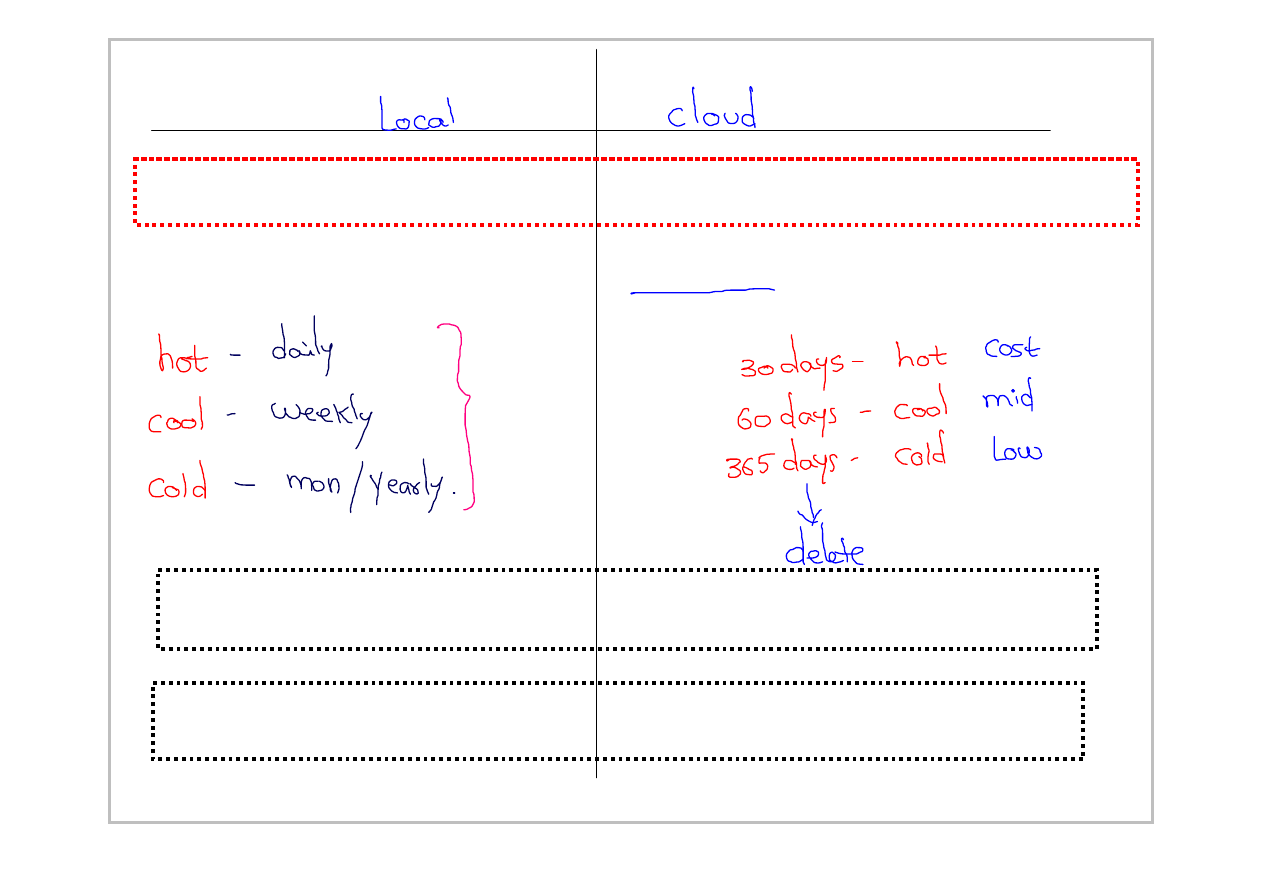 Local cloud
hot - daily
cool - weekly
cold - mon/yearly.
30 days - hot cost
60 days - cool mid
365 days - cold Low
delete